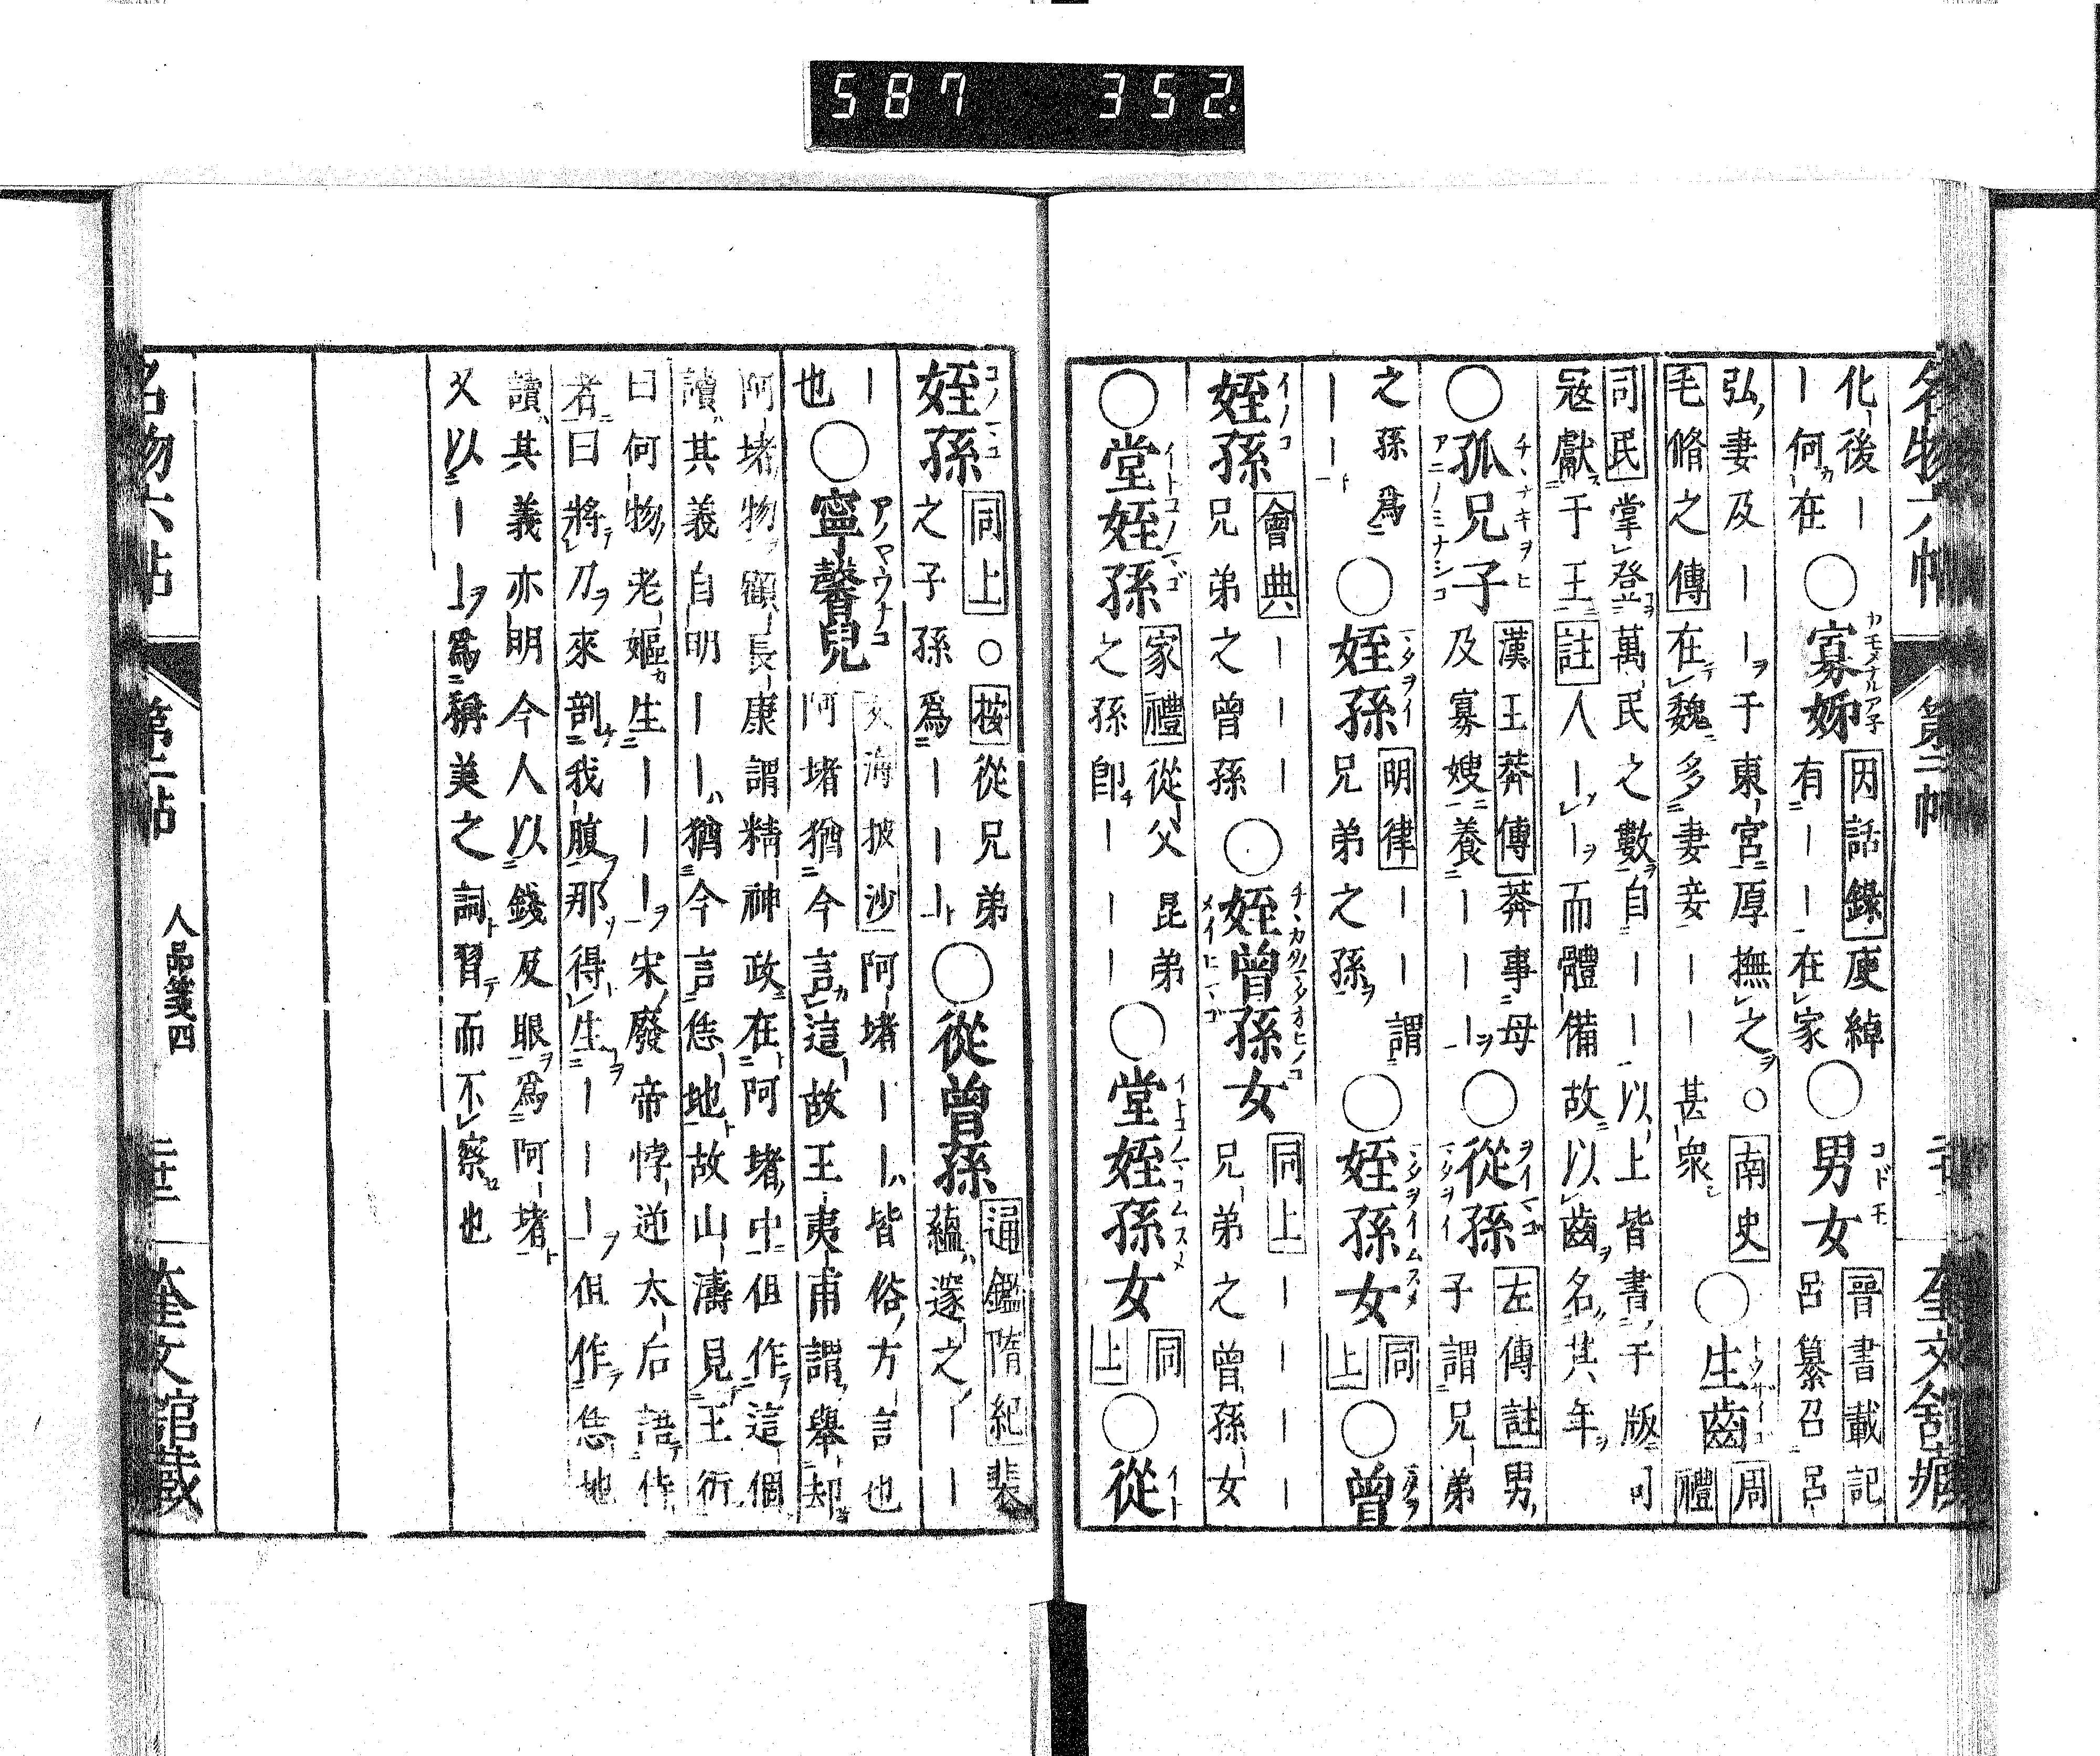 587 352
名物六帖 第二帖
化後｜
｜何在○寡姊 カモメナルアネ 因話錄 庾綽
有｜｜在家○男女 コドモ 晉書載記
呂纂召呂
弘妻及｜｜ヲ于東宮厚撫之○南史
毛脩之傳 在魏多妻妾｜｜甚衆○生齒 周禮
司民 掌登萬民之數自｜｜以上皆書于版司
寇獻于王 註 人｜｜而體備故以齒名其年
○孤兄子 チヽナキヲヒ アニノミナシコ 漢王莽傳 莽事母
及寡嫂養｜｜｜ヲ○從孫 左傳註 男
子謂兄弟
之孫爲
｜｜ト○姪孫 明律 ｜｜謂
兄弟之孫○姪孫女 同上○曾
姪孫 イノコ 會典 ｜｜｜
兄弟之曾孫○姪曾孫女 同上 ｜｜｜｜
兄弟之曾孫女
○堂姪孫 家禮 從父昆弟
之孫卽｜｜｜○堂姪孫女 同上○從
姪孫 同上○按 從兄弟
之子孫爲｜｜｜ト○從曾孫 通鑑隋紀 裴
蘊邃之｜｜
｜
也○寧馨兒 アノヤウナコ 文海披沙 阿堵｜｜皆俗方言也
阿堵猶今言這故王夷甫謂舉却
阿堵物顧長康謂精神政在阿堵中但作這個
讀其義自明｜｜猶今言恁地故山濤見王衍
曰何物老嫗生｜｜｜ヲ宋廢帝悖逆太后語侍
者曰將刀來剖我腹那得生｜｜｜ヲ但作恁地
讀其義亦明今人以錢及眼爲阿堵
又以｜｜ヲ爲稱美之詞習而不察也
人品箋四
奎文館藏